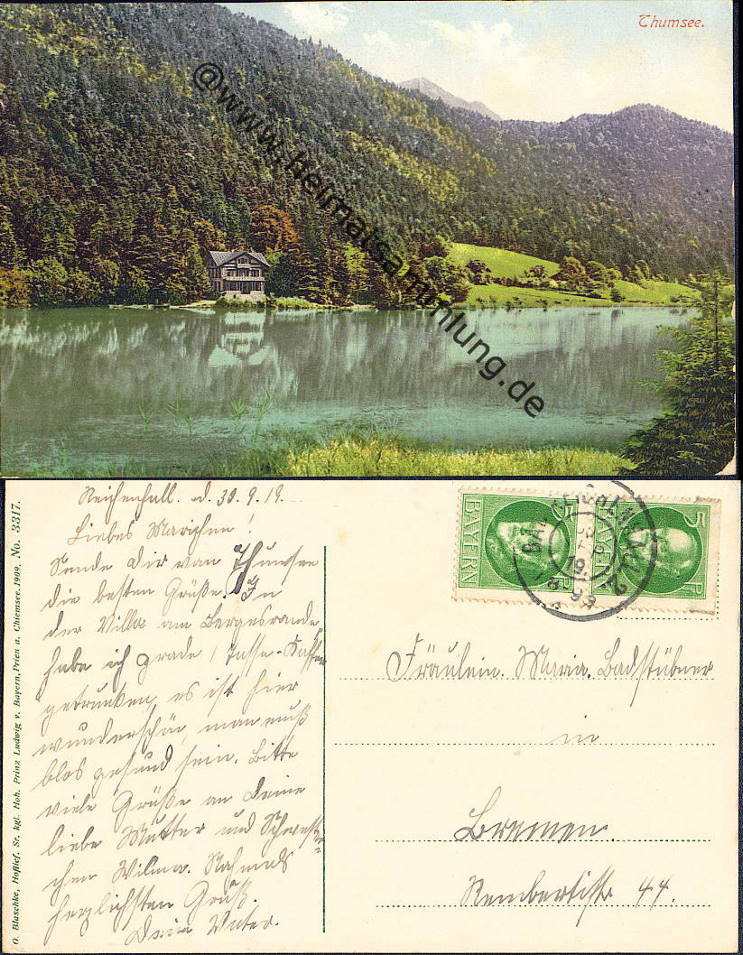 Thumsee.
@www.heimatsammlung.de
Reichenhall. d. 30.9.19.
Liebes Mariechen!
Sende Dir von Thumsee
die besten Grüße. In
der Villa am Bergesrande
habe ich grade 1 Tasse Kaffee
getrunken, es ist hier
wunderschön, man muß
blos gesund sein. Bitte
viele Grüße an Deine
liebe Mutter und Schwester-
chen Wilma. Nochmals
herzlichsten Gruß.
Dein Vater.
O. Blaschke, Hoflief. Sr. kgl. Hoh. Prinz Ludwig v. Bayern, Prien a. Chiemsee. 1909. No. 3317.
BAYERN 5
BAYERN 5 P
BAD REICHENHALL 2
Fräulein. Maria. Badstübner
in
Bremen.
Rembertistr 44.